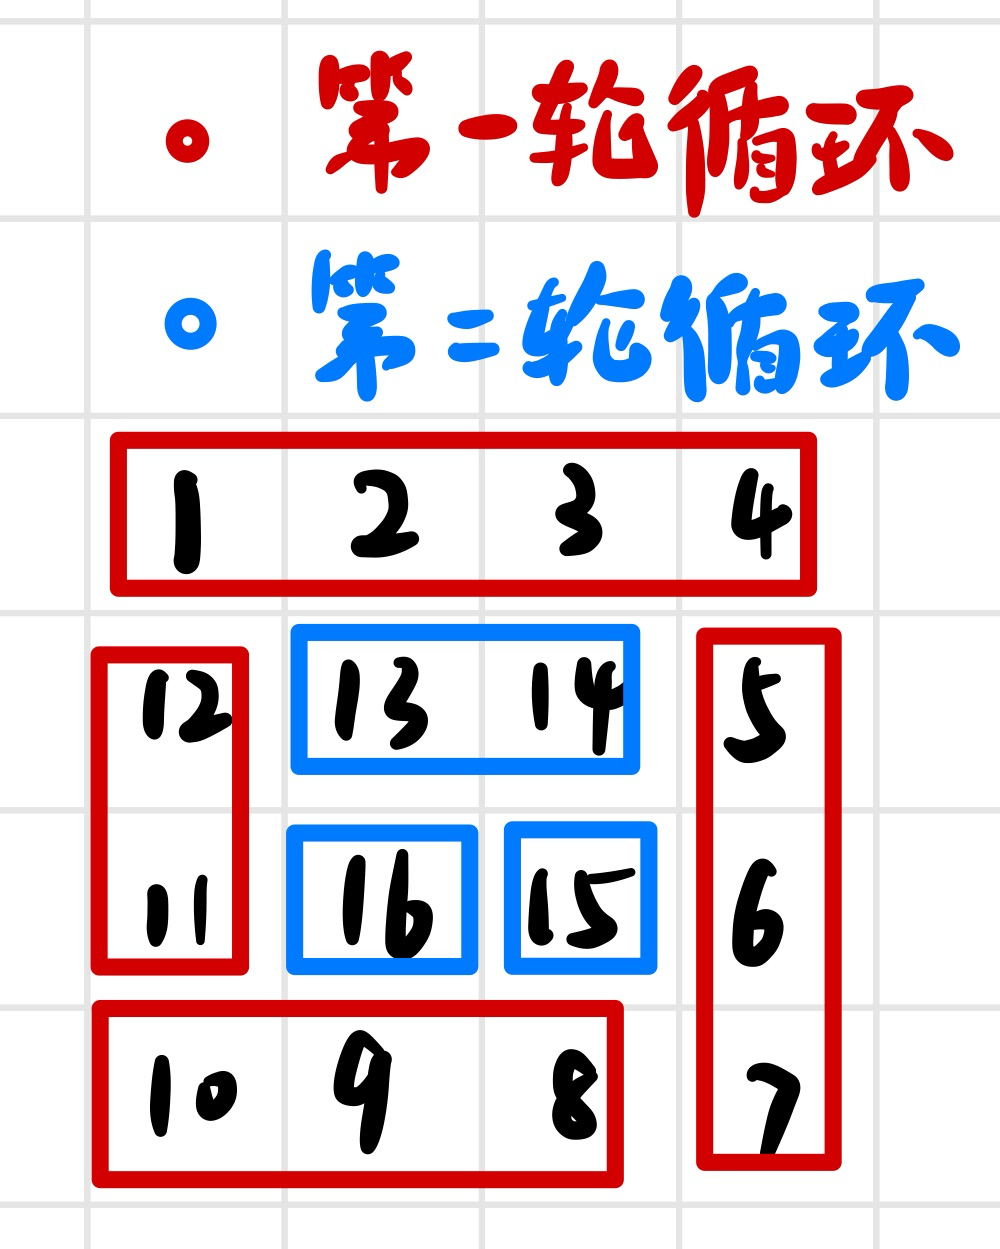 第一轮循环
第二轮循环
1 2 3 4
12 13 14 5
11 16 15 6
10 9 8 7